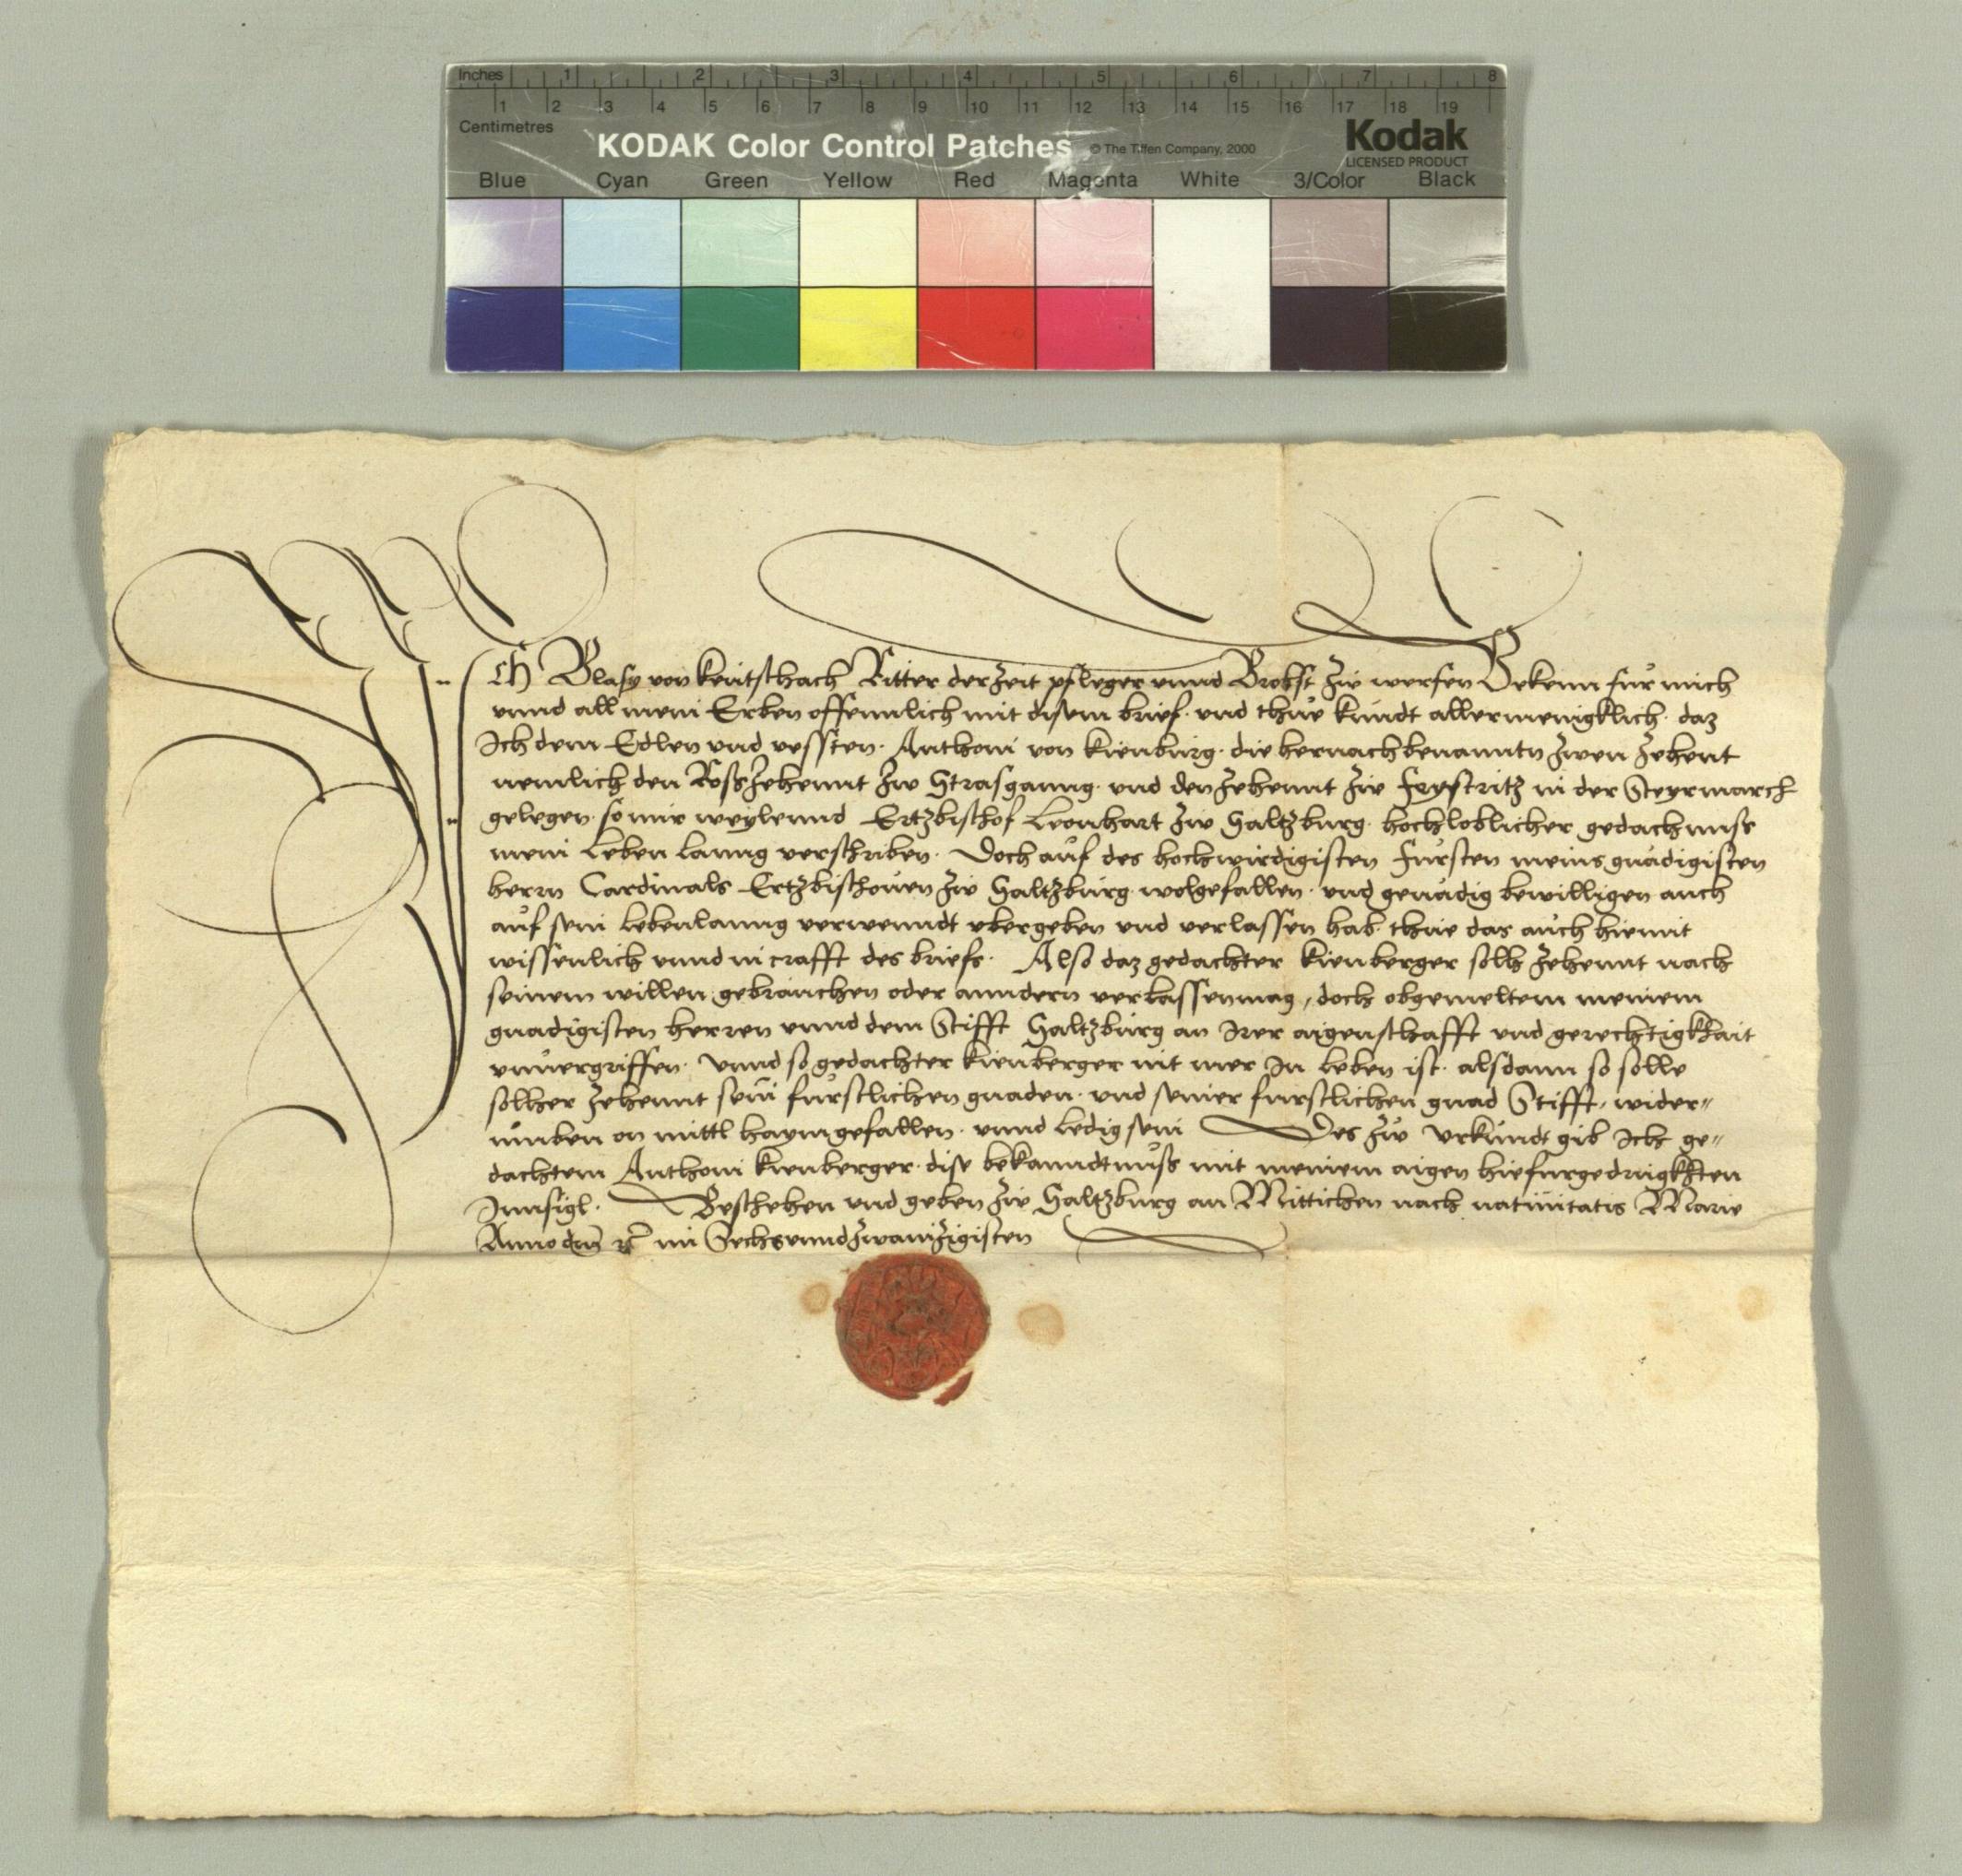 Inches 1 2 3 4 5 6 7 8
1 2 3 4 5 6 7 8 9 10 11 12 13 14 15 16 17 18 19
Centimetres
KODAK Color Control Patches © The Tiffen Company, 2000 Kodak
LICENSED PRODUCT
Blue Cyan Green Yellow Red Magenta White 3/Color Black
Ich Blasy von Keutschach Ritter der Zeit pfleger vnnd Brobst Zw werfen Bekenn für mich
vnnd all mein Erben offennlich mit disem brief. vnd thue kundt allermenigklich. daz
Ich dem Edlen vnd vessten. Anthoni von Kienburg. die hernachbenanntn zwen Zehent
nemlich den Rosszehennt Zw Strasganng. vnd den Zehennt Zw Feystritz in der Steyrmarch
gelegen. so mir weylennd Ertzbischof Leonhart Zw Saltzburg. hochloblicher gedachnuss
mein Leben lanng verschriben. Doch auf des hochwirdigisten Fursten meins gnädigisten
herrn Cardinals Ertzbischouen Zw Saltzburg. wolgefallen. vnd genädig bewilligen auch
auf sein Lebenlanng verwenndt vbergeben vnd verlassen hab. thue das auch hiemit
wissenlich vnnd in crafft des briefs. Also daz gedachter Kienberger solh Zehennt nach
seinem willen gebrauchen oder anndern verlassen mag, doch obgemeltem meinem
gnadigisten herren vnnd dem Stifft Saltzburg an Irer aigenschafft vnd gerechtigkhait
vnuergriffen. Vnnd so gedachter Kienberger nit mer In leben ist. alsdann so solle
solher Zehennt sein furstlichen gnaden. vnd seiner furstlichen gnad Stifft, wider"
umben on mittl haymgefallen. vnnd ledig sein Des Zw Vrkundt gib Ich ge"
dachtem Anthoni Kienberger. dise bekanndtnuss mit meinem aigen hiefurgedrugkhten
Innsigl. Beschehen vnd geben Zw Saltzburg an Mittichen nach natiuitatis Marie
Anno dm̄ im Sechsvnndzwainzigisten